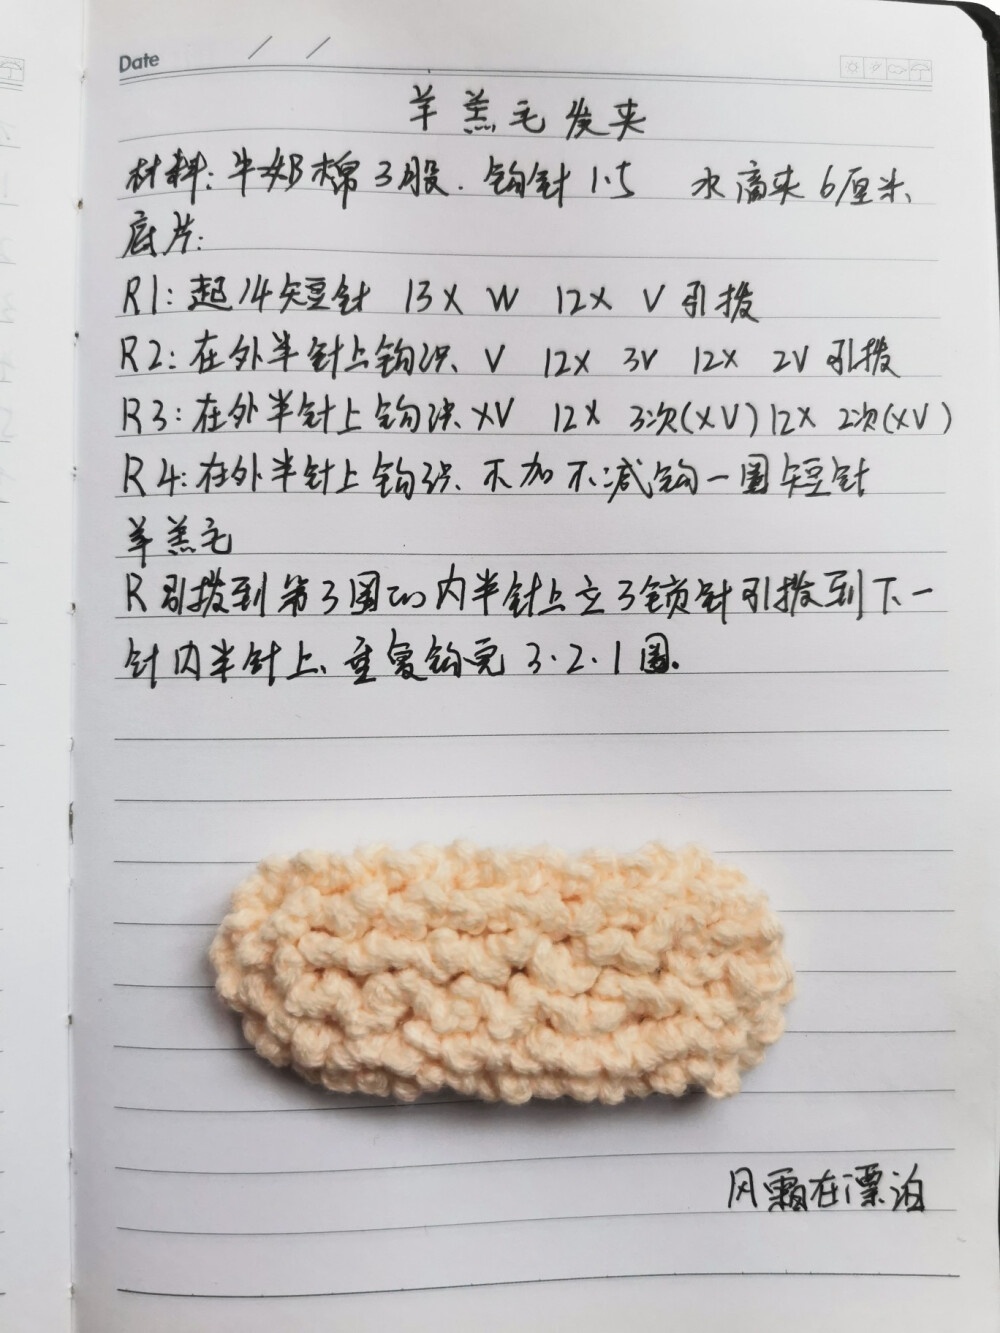 Date / /
羊羔毛发夹
材料:牛奶棉3股. 钩针1.5 水滴夹6厘米、
底片:
R1:起14短针 13X W 12X V 引拨
R2:在外半针上钩织、V 12X 3V 12X 2V 引拨
R3:在外半针上钩织、XV 12X 3次(XV) 12X 2次(XV)
R4:在外半针上钩织、不加不减钩一圈短针
羊羔毛
R引拨到第3圈的内半针上立3锁针引拨到下一
针内半针上、重复钩完3.2.1圈.
风霜在漂泊